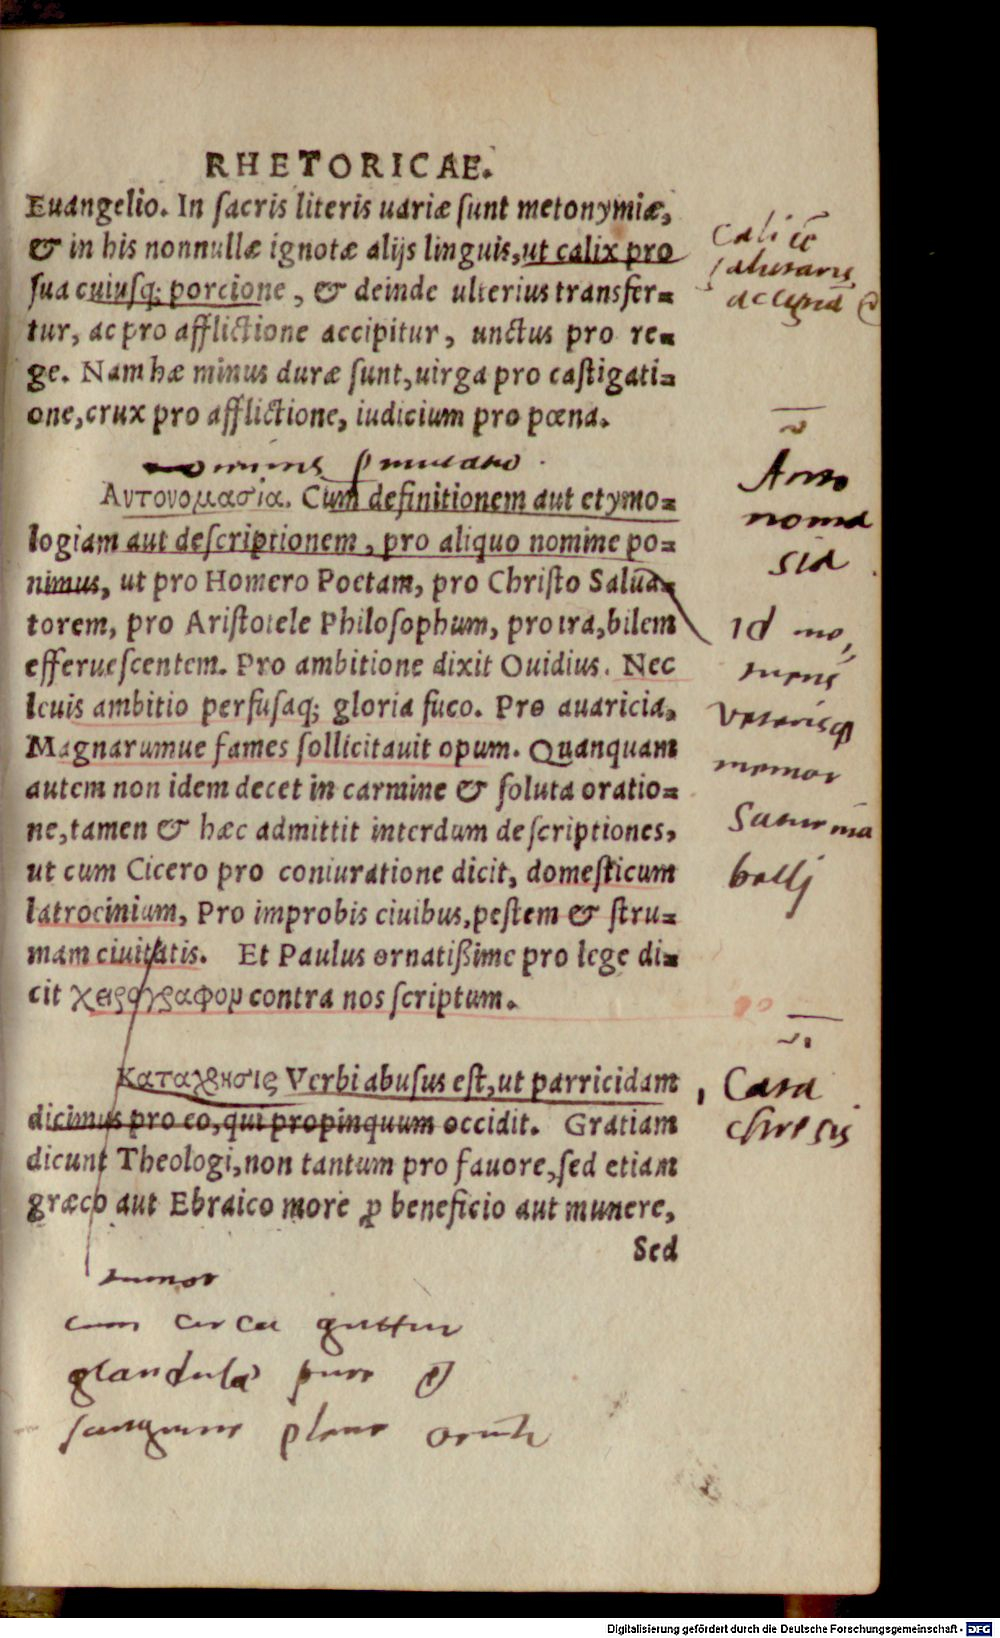 RHETORICAE.
Euangelio. In ſacris literis uariæ ſunt metonymiæ,
& in his nonnullæ ignotæ alijs linguis, ut calix pro
ſua cuiuſq; porcione, & deinde ulterius transfer=
tur, ac pro afflictione accipitur, unctus pro re=
ge. Nam hæ minus duræ ſunt, uirga pro caſtigati=
one, crux pro afflictione, iudicium pro pœna.
Calicē
salutaris
2
Αντονομασία. Cum definitionem aut etymo=
logiam aut deſcriptionem, pro aliquo nomine po=
nimus, ut pro Homero Poetam, pro Chriſto Salua=
torem, pro Ariſtotele Philoſophum, pro ira, bilem
efferueſcentem. Pro ambitione dixit Ouidius. Nec
leuis ambitio perfuſaq; gloria fuco. Pro auaricia,
Magnarumue fames ſollicitauit opum. Quanquam
autem non idem decet in carmine & ſoluta oratio=
ne, tamen & hæc admittit interdum deſcriptiones,
ut cum Cicero pro coniuratione dicit, domeſticum
latrocinium, Pro improbis ciuibus, peſtem & ſtru=
mam ciuitatis. Et Paulus ornatißime pro lege di=
cit χειρόγραφον contra nos ſcriptum.
Anto
noma
sia
Id
Veterisq
memor
Saturnia
belli
Καταχρησις Verbi abuſus eſt, ut parricidam
dicimus pro eo, qui propinquum occidit. Gratiam
dicunt Theologi, non tantum pro fauore, ſed etiam
græco aut Ebraico more ꝓ beneficio aut munere,
Sed
Cata
chresis
tumor
cum circa guttur
glandulæ pure
sanguine plene
Digitalisierung gefördert durch die Deutsche Forschungsgemeinschaft - DFG